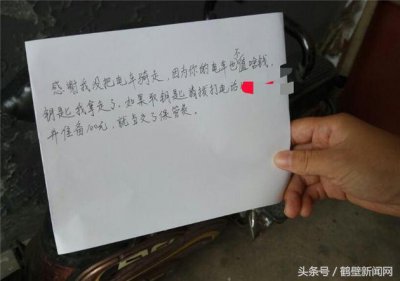 感谢我没把电车骑走,因为你的电车也不值啥钱,
钥匙我拿走了。如果取钥匙 拨打电话
并准备100元,就当交了保管费。
头条号/鹤壁新闻网